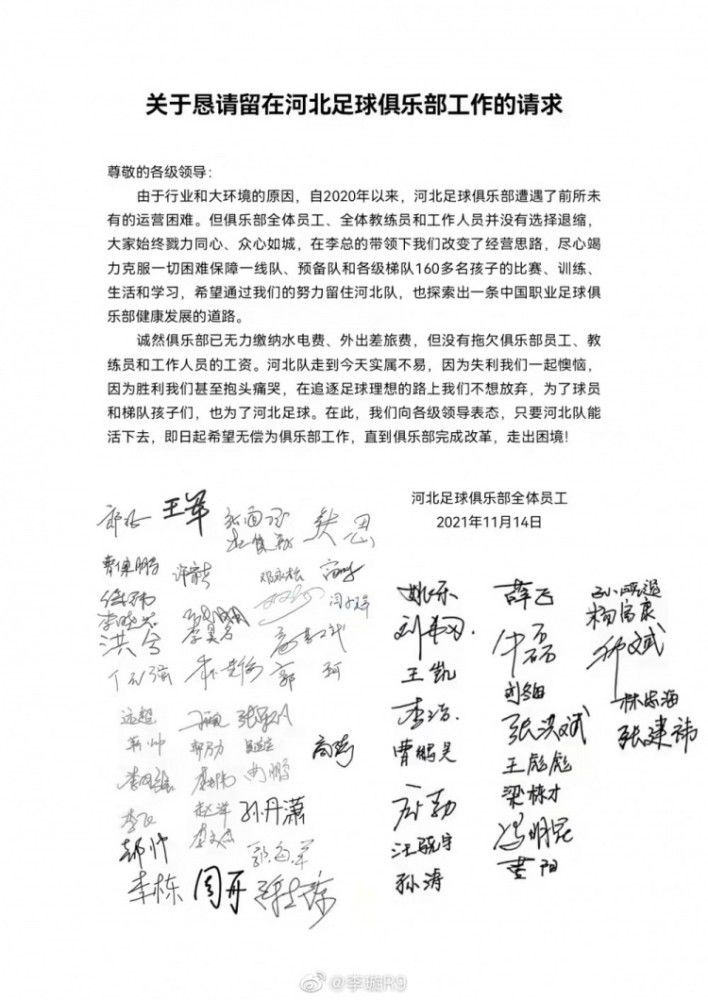 关于恳请留在河北足球俱乐部工作的请求
尊敬的各级领导：
由于行业和大环境的原因，自2020年以来，河北足球俱乐部遭遇了前所未
有的运营困难。但俱乐部全体员工、全体教练员和工作人员并没有选择退缩，
大家始终戮力同心、众心如城，在李总的带领下我们改变了经营思路，尽心竭
力克服一切困难保障一线队、预备队和各级梯队160多名孩子的比赛、训练、
生活和学习，希望通过我们的努力留住河北队，也探索出一条中国职业足球俱
乐部健康发展的道路。
诚然俱乐部已无力缴纳水电费、外出差旅费，但没有拖欠俱乐部员工、教
练员和工作人员的工资。河北队走到今天实属不易，因为失利我们一起懊恼，
因为胜利我们甚至抱头痛哭，在追逐足球理想的路上我们不想放弃，为了球员
和梯队孩子们，也为了河北足球。在此，我们向各级领导表态，只要河北队能
活下去，即日起希望无偿为俱乐部工作，直到俱乐部完成改革，走出困境！
河北足球俱乐部全体员工
2021年11月14日
王军
姚乐
薛飞
杨富康
洪兮
王凯
郭珂
李浩
张洪斌
林忠海
曹鹏昊
张建祎
王彪彪
梁栋才
孙丹潇
汪骁宇
冯明昆
郝帅
孙涛
黄阳
李栋
周开
@李璇R9